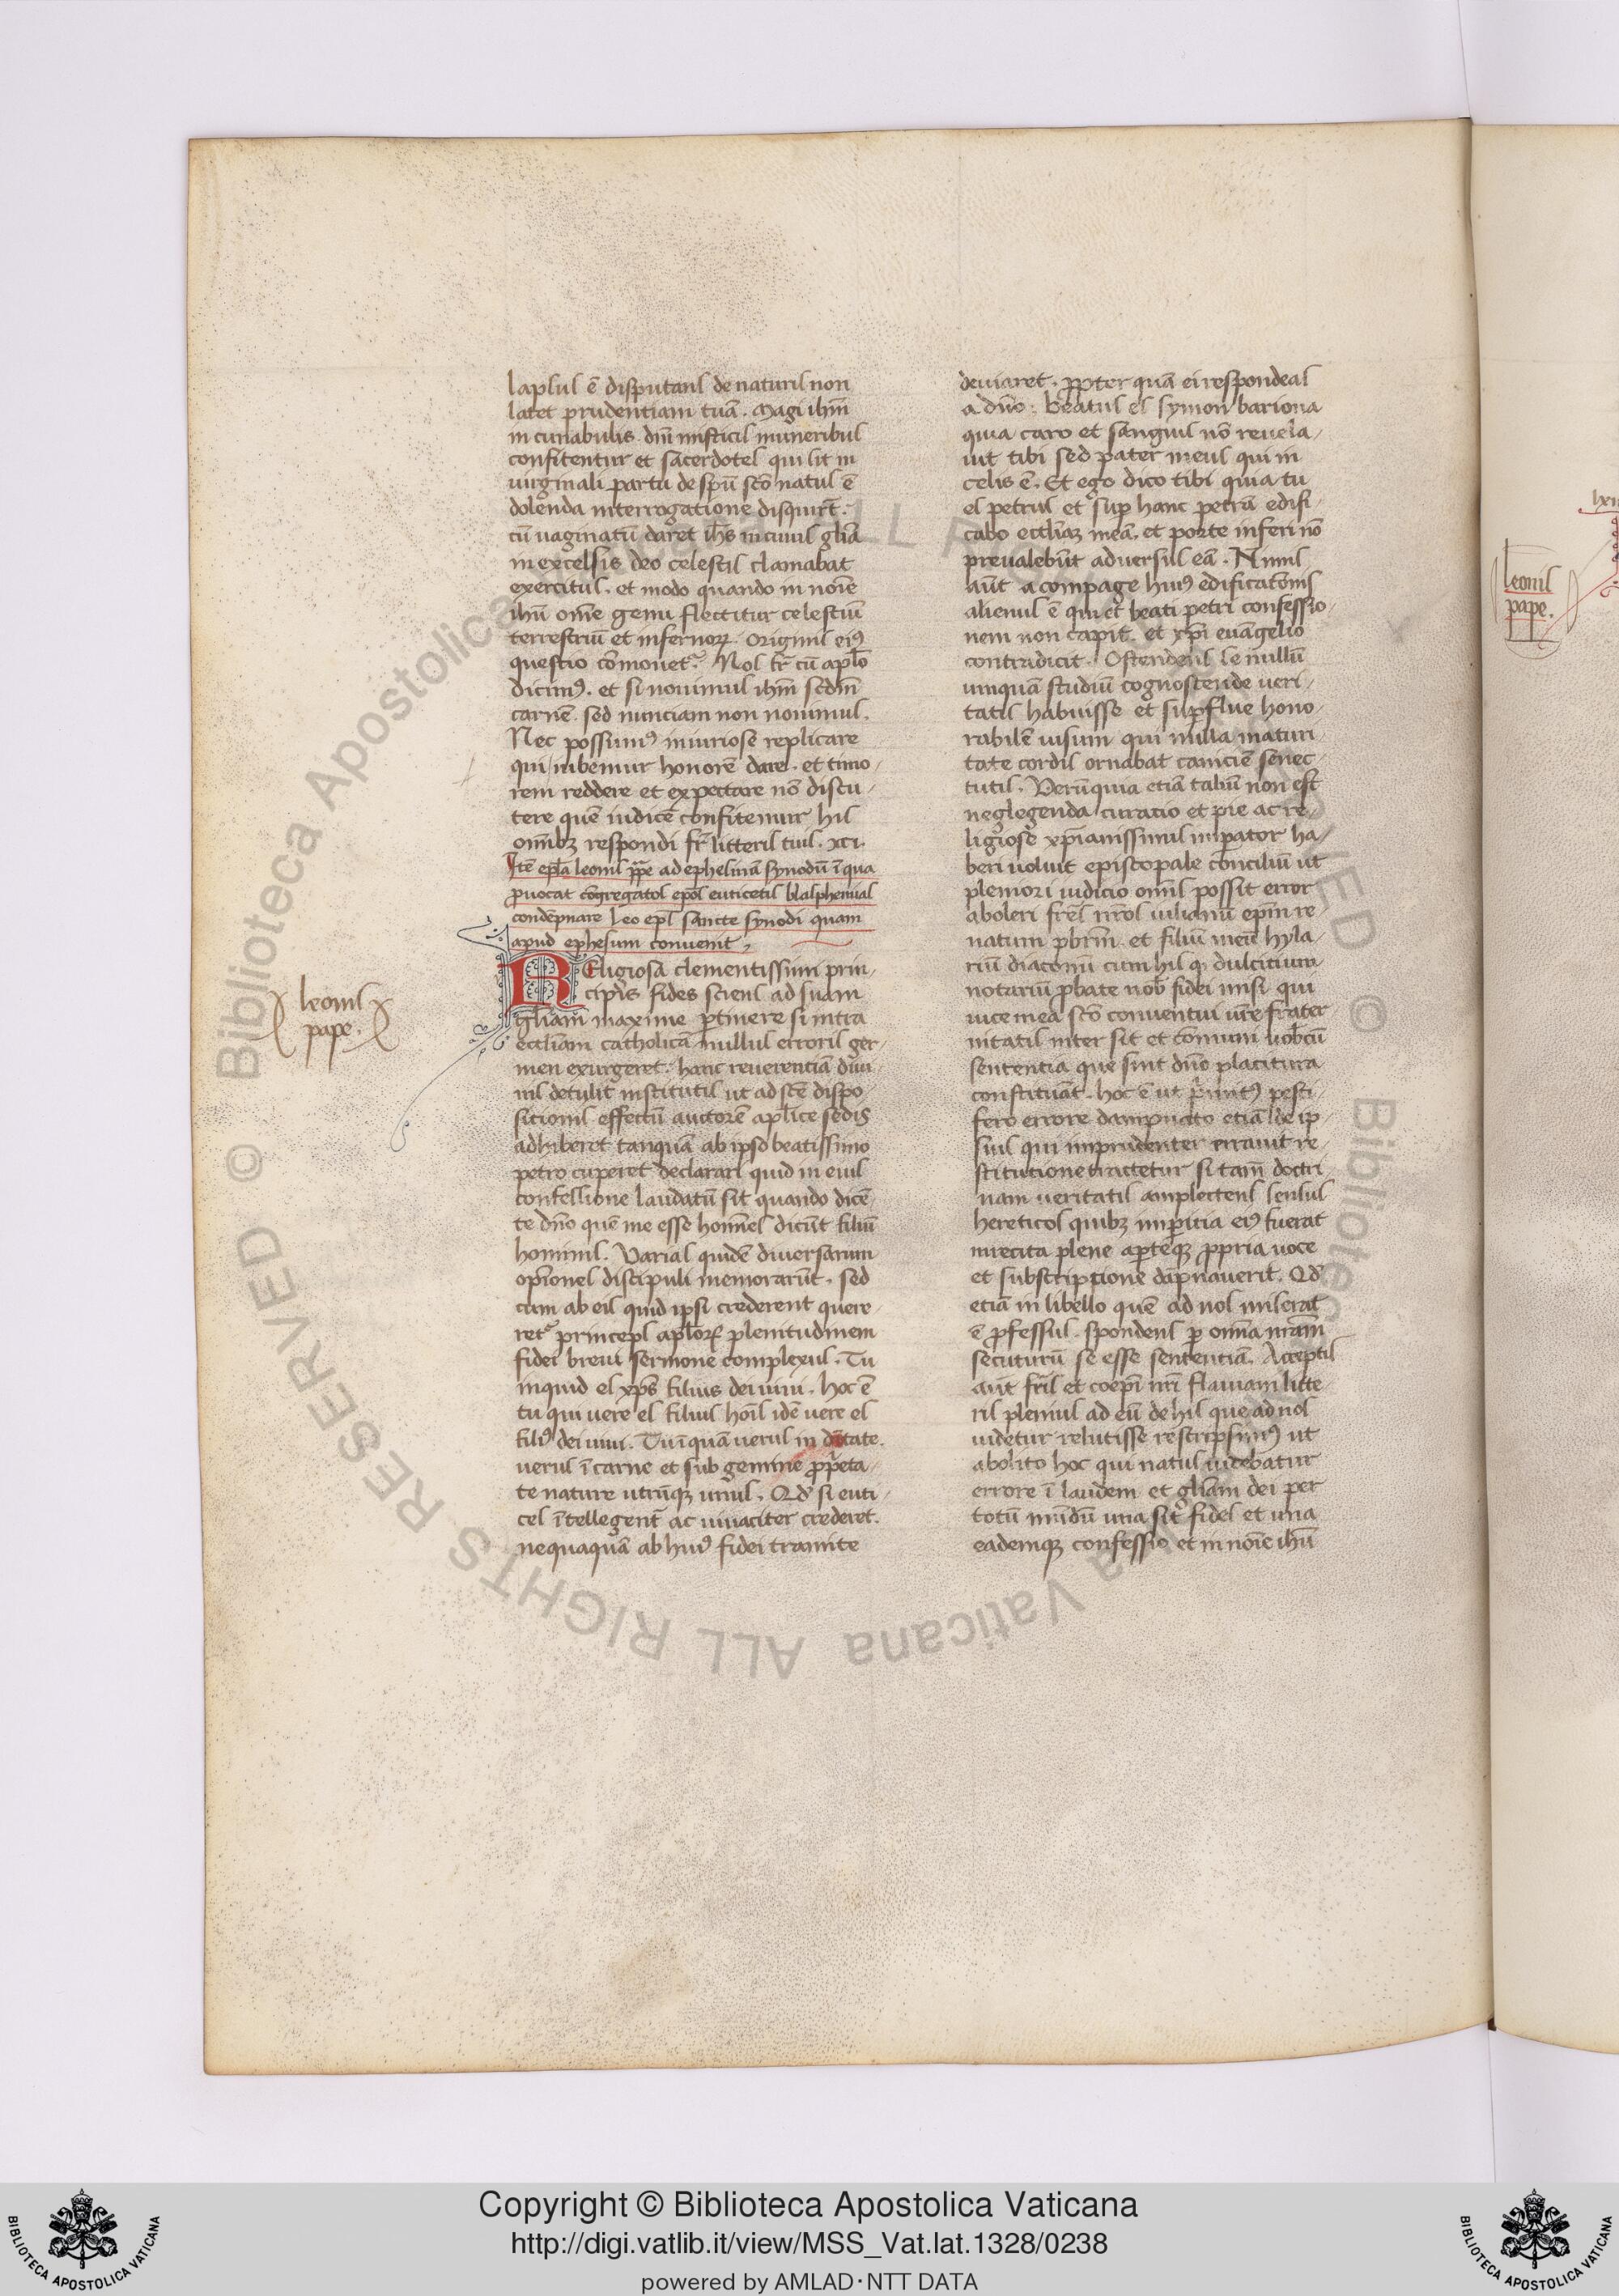 lapsus ē disputans de naturis non
latet prudentiam tuā. Magi ihm̄
in cunabulis dn̄i misticis muneribus
confitentur et sacerdotes quis sit in
uirginali partu de spū sc̄o natus ē
dolenda interrogatione disquirūt.
cū uaginatū daret ih̄s in cuius gl̄ia
in excelsis deo celestis clamabat
exercitus. et modo quando in noīe
ihū om̄e genu flectitur celestiū
terrestriū et infernoꝝ. originis eiꝰ
questio cōmouetᷣ. Nos fr̄ cū apl̄o
dicimꝰ. et si nouimus ihm̄ scdm̄
carnē. sed nunc iam non nouimus.
Nec possumꝰ iniuriose replicare
qui iubemur honorē dare. et timo-
rem reddere et expectare nō discu-
tere quē iudicē confitemur his
om̄ibꝫ respondi fr̄ litteris tuis. xci.
Itē epl̄a leonis pp̄e ad ephesinā synodū ī qua
ꝓuocat cōgregatos ep̄os euticetis blasphemias
condēpnare Leo ep̄s sancte synodi quam
apud ephesum conuenit
Religiosa clementissimi prin-
cipis fides sciens ad suam
gl̄iam maxime ꝑtinere si intra
eccl̄iam catholicā nullus erroris ger-
men exurgeret. hanc reuerentiā diui-
nis detulit institutis ut ad sc̄e dispo-
sitionis effectū auctorē apl̄ice sedis
adhiberet tanquā ab ipso beatissimo
petro cuperet declarari quid in eius
confessione laudatū sit quando dicē-
te dn̄o quē me esse homīes dicūt filiū
hominis. Varias quidē diuersarum
opīones discipuli memorarūt. sed
cum ab eis quid ipsi crederent quere-
retᷣ princeps apl̄oꝝ plenitudinem
fidei breui sermone complexus. Tu
inquid es xp̄s filius dei uiui. hoc ē
tu qui uere es filius hoīs idē uere es
filiꝰ dei uiui. Tu īquā uerus in dītate.
uerus ī carne et sub gemine ꝓpeta-
te nature utrūqꝫ unus. Qd̄ si euti-
ces ītellegenť ac uiuaciter crederet.
nequaquā ab huiꝰ fidei tramite
leonis
pape.
deuiaret. ꝓpter quā ei respondeas
a dn̄o. Beatus es symon bariona
quia caro et sanguis nō reuela-
uit tibi sed pater meus qui in
celis ē. Et ego dico tibi quia tu
es petrus et suꝑ hanc petrā edifi-
cabo eccl̄iaꝫ meā. et porte inferi nō
preualebūt aduersus eā. Nimis
aūt a compage huiꝰ edificatōnis
alienus ē qui et beati petri confessio-
nem non capit. et xp̄i euāgelio
contradicit. Ostendens se nullū
umquā studiū cognoscende ueri-
tatis habuisse et suꝑflue hono-
rabilē uisum qui nulla maturi-
tate cordis ornabat caniciē senec-
tutis. Verū quia etiā taliū non est
neglegenda curatio et pie ac re-
ligiose xp̄ianissimus imꝑator ha-
beri uoluit episcopale conciliū ut
plemori iudicio om̄is possit error
aboleri fr̄es nr̄os iulianū ep̄m re-
natum pb̄rm et filiū meū hyla-
riū diaconū cum his qꝫ dulcitium
notariū ꝓbate nob̄ fidei misi qui
uice mea sc̄o conuentui ur̄e frater-
nitatis inter sit et cōmuni uobcū
sententia que sint dn̄o placitura
constituāt. hoc ē ut p̄mitꝰ pesti-
fero errore dampnato etiā de ip-
sius qui imprudenter errauit re-
stitutione tractetur si tam̄ doctri-
nam ueritatis amplectens sensus
hereticos quibꝫ imꝑitia eiꝰ fuerat
irrecita plene aꝑteqꝫ ꝓpria uoce
et subscriptione dāpnauerit. Qd̄
etiā in libello quē ad nos miserat
ē ꝓfessus. spondens ꝑ om̄a nrām
secuturū se esse sententiā. Acceptis
aūt fr̄is et coep̄i nr̄i flauiani litte-
ris plenius ad eū de his que ad nos
uidetur relutisse rescripsimꝰ ut
abolito hoc qui natus uidebatur
errore ī laudem et gl̄iam dei per
totū mūdū una sit fides et una
eademqꝫ confessio et in noīe ihū
leonis
pape.
Copyright © Biblioteca Apostolica Vaticana
http://digi.vatlib.it/view/MSS_Vat.lat.1328/0238
powered by AMLAD·NTT DATA
BIBLIOTECA APOSTOLICA VATICANA
BIBLIOTECA APOSTOLICA VATICANA